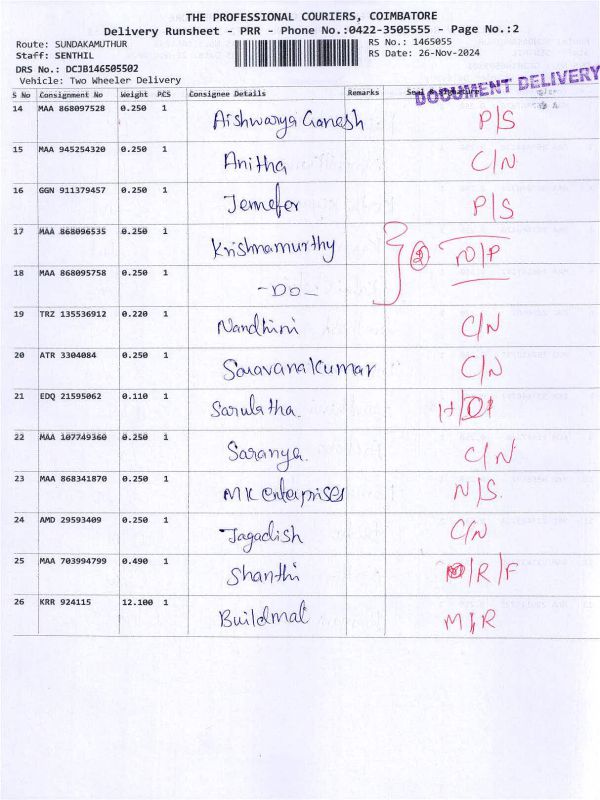 THE PROFESSIONAL COURIERS, COIMBATORE
Delivery Runsheet - PRR - Phone No.:0422-3505555 - Page No.:2
Route: SUNDAKAMUTHUR RS No.: 1465055
Staff: SENTHIL RS Date: 26-Nov-2024
DRS No.: DCJB146505502
Vehicle: Two Wheeler Delivery
DOCUMENT DELIVERY
S No Consignment No Weight PCS Consignee Details Remarks Seal & Signature
14 MAA 868097528 0.250 1 Aishwarya Ganesh P/S
15 MAA 945254320 0.250 1 Anitha C/N
16 GGN 911379457 0.250 1 Jennefer P/S
17 MAA 868096535 0.250 1 Krishnamurthy } 2 N/P
18 MAA 868095758 0.250 1 -Do-
19 TRZ 135536912 0.220 1 Nandhini C/N
20 ATR 3304084 0.250 1 Saravanakumar C/N
21 EDQ 21595062 0.110 1 Sarulatha.
22 MAA 107749360 0.250 1 Saranya. C/N
23 MAA 868341870 0.250 1 MK enterprises N/S.
24 AMD 29593409 0.250 1 Jagadish C/N
25 MAA 703994799 0.490 1 Shanthi /R/F
26 KRR 924115 12.100 1 Buildmat M/R